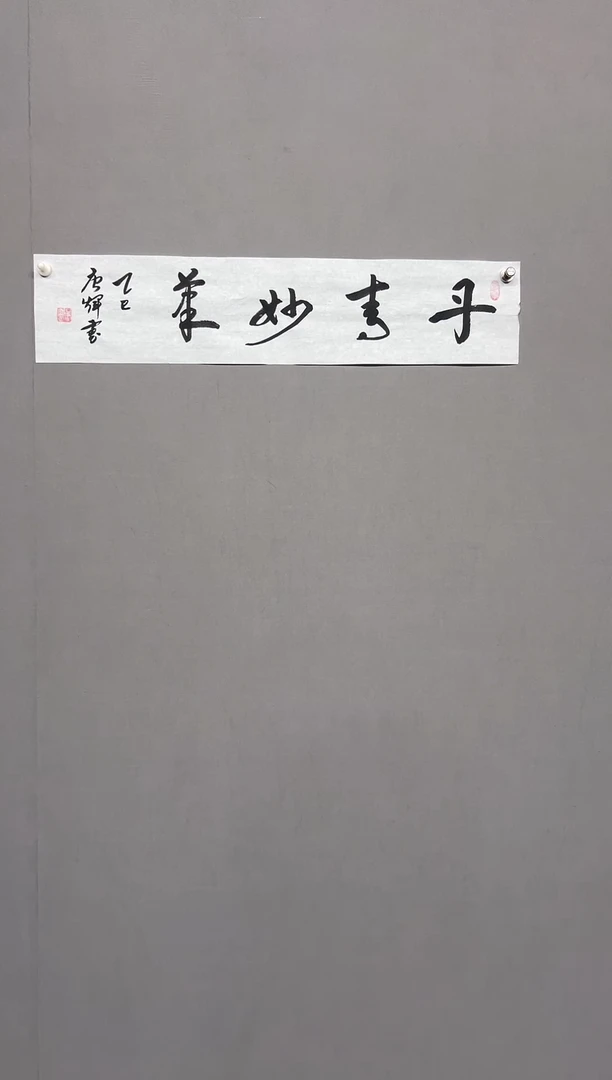 丹青妙筆
乙巳
唐輝書